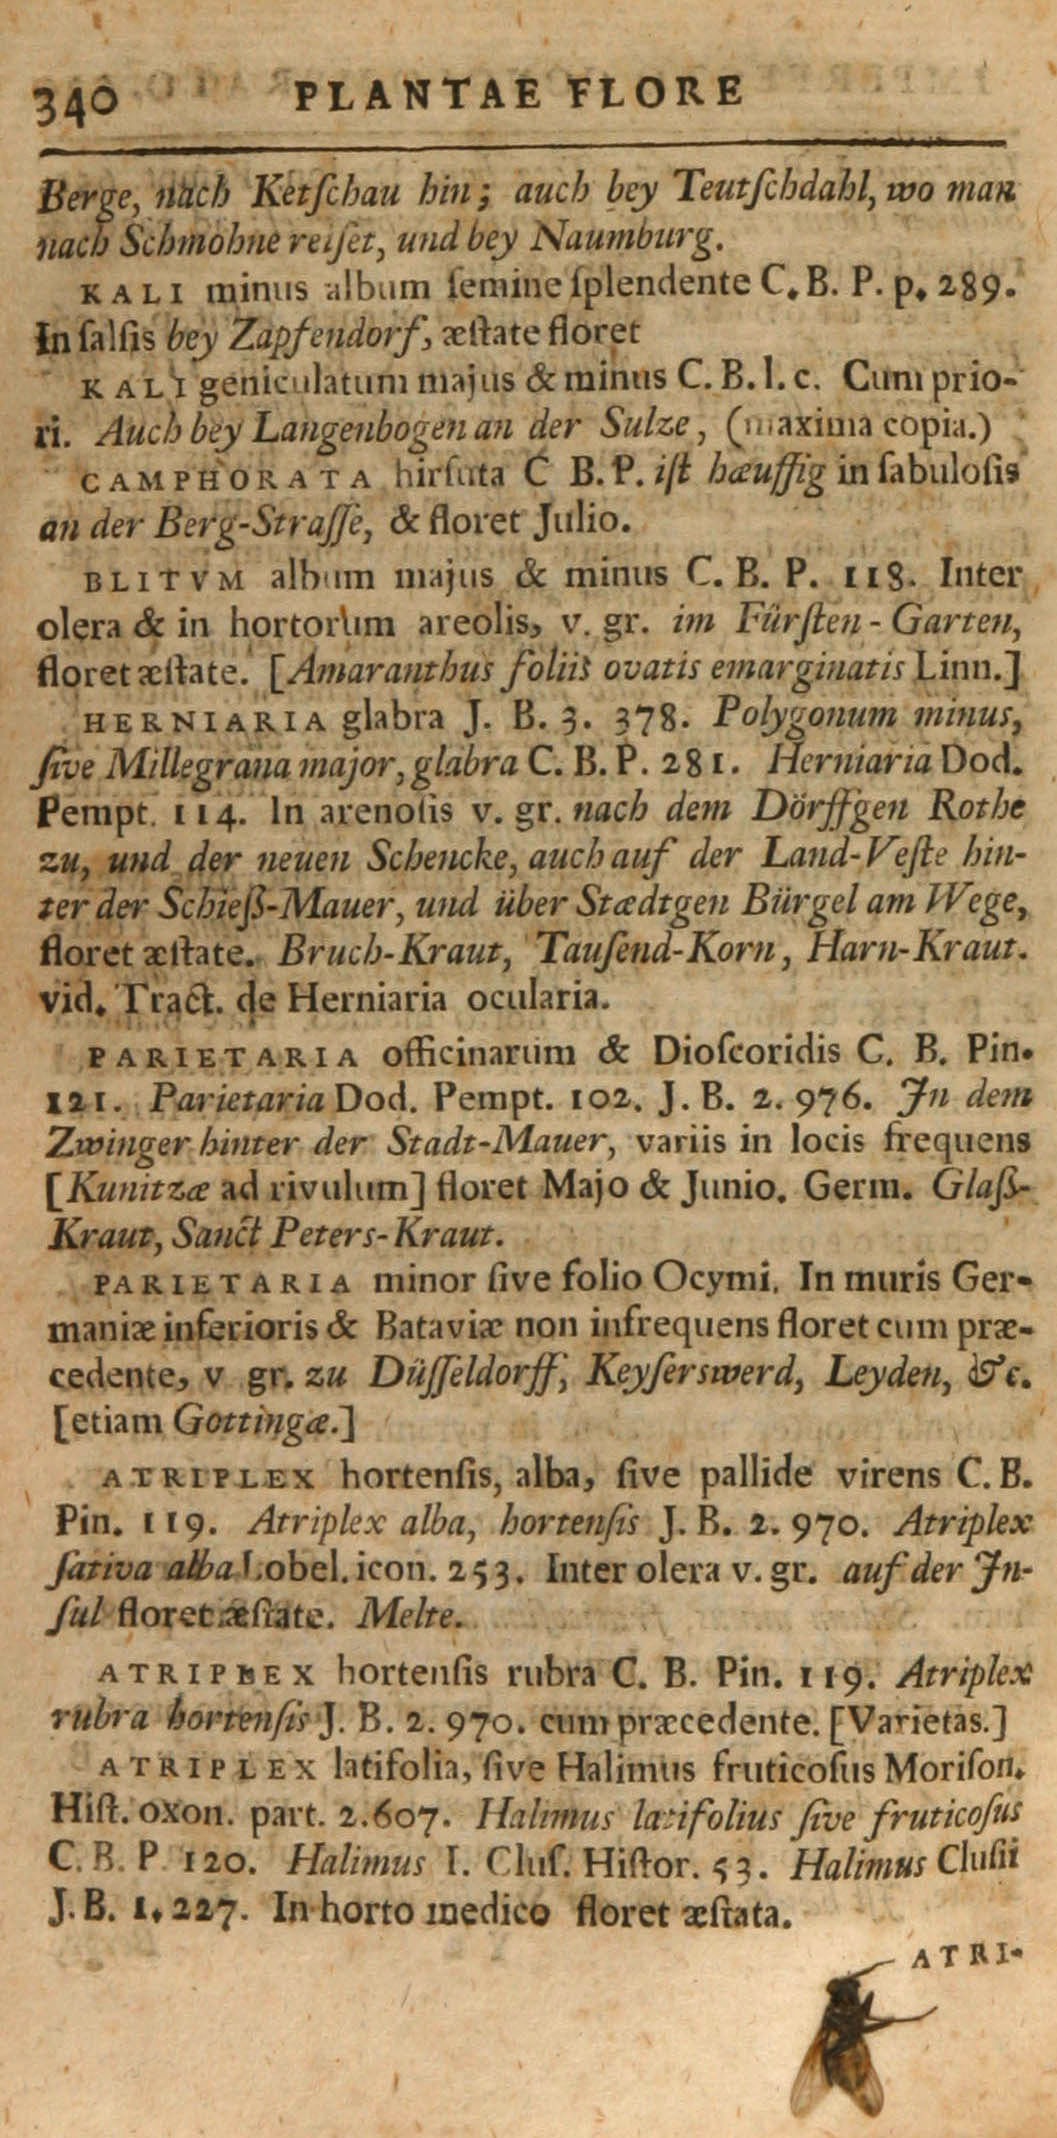 340 PLANTAE FLORE
Berge, nach Ketſchau hin; auch bey Teutſchdahl, wo man
nach Schmohne reiſet, und bey Naumburg.
KALI minus album ſemine ſplendente C. B. P. p. 289.
In ſalſis bey Zapfendorf, æſtate floret
KALI geniculatum majus & minus C. B. l. c. Cum prio-
ri. Auch bey Langenbogen an der Sulze, (maxima copia.)
CAMPHORATA hirſuta C B. P. iſt hæuffig in ſabuloſis
an der Berg-Straſſe, & floret Julio.
BLITVM album majus & minus C. B. P. 118. Inter
olera & in hortorum areolis, v. gr. im Fürſten-Garten,
floret æſtate. [Amaranthus foliis ovatis emarginatis Linn.]
HERNIARIA glabra J. B. 3. 378. Polygonum minus,
ſive Millegrana major, glabra C. B. P. 281. Herniaria Dod.
Pempt. 114. In arenoſis v. gr. nach dem Dörffgen Rothe
zu, und der neuen Schencke, auch auf der Land-Veſte hin-
ter der Schieß-Mauer, und über Stædtgen Bürgel am Wege,
floret æſtate. Bruch-Kraut, Tauſend-Korn, Harn-Kraut.
vid. Tract. de Herniaria ocularia.
PARIETARIA officinarum & Dioſcoridis C. B. Pin.
121. Parietaria Dod. Pempt. 102. J. B. 2. 976. Jn dem
Zwinger hinter der Stadt-Mauer, variis in locis frequens
[Kunitzæ ad rivulum] floret Majo & Junio. Germ. Glaß-
Kraut, Sanct Peters-Kraut.
PARIETARIA minor ſive folio Ocymi. In muris Ger-
maniæ inferioris & Bataviæ non infrequens floret cum præ-
cedente, v gr. zu Düſſeldorff, Keyſerswerd, Leyden, &c.
[etiam Gottingæ.]
ATRIPLEX hortenſis, alba, ſive pallide virens C. B.
Pin. 119. Atriplex alba, hortenſis J. B. 2. 970. Atriplex
ſativa alba Lobel. icon. 253. Inter olera v. gr. auf der Jn-
ſul floret æſtate. Melte.
ATRIPLEX hortenſis rubra C. B. Pin. 119. Atriplex
rubra hortenſis J. B. 2. 970. cum præcedente. [Varietas.]
ATRIPLEX latifolia, ſive Halimus fruticoſus Moriſon.
Hiſt. oxon. part. 2. 607. Halimus latifolius ſive fruticoſus
C. B. P 120. Halimus I. Cluſ. Hiſtor. 53. Halimus Cluſii
J. B. 1. 227. In horto medico floret æſtata.
ATRI-